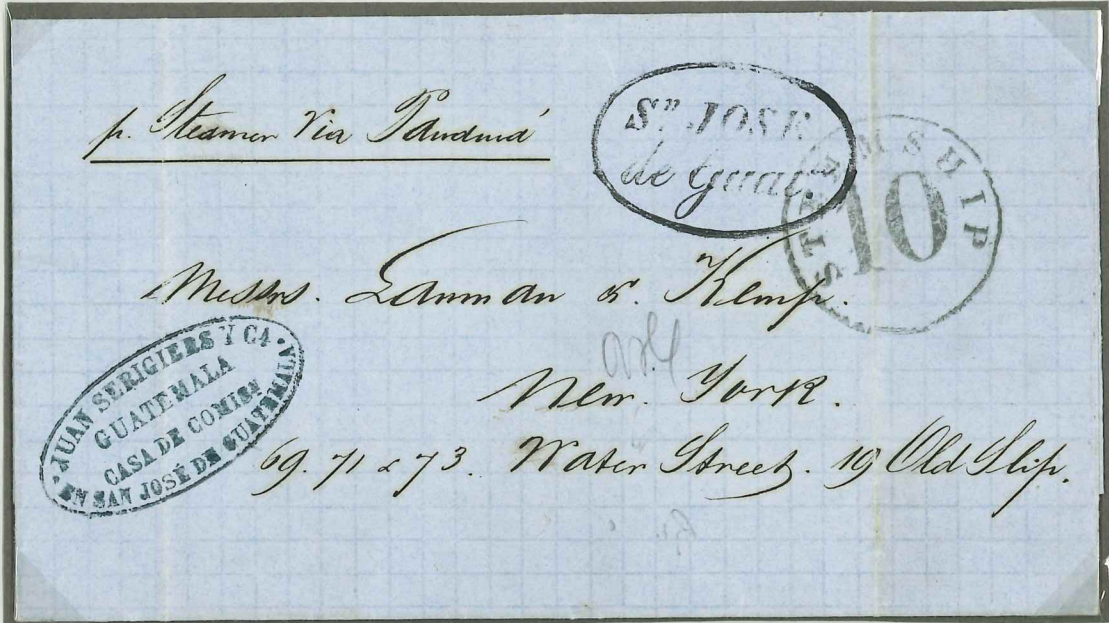 p. Steamer Via Panamá
Sn JOSE
de Guat.
STEAMSHIP
10
Messrs. Lanman & Kemp.
New. York.
69. 71 & 73. Water Street. 19 Old Slip.
JUAN SERIGIERS Y CA
GUATEMALA
CASA DE COMISN
EN SAN JOSÉ DE GUATEMALA